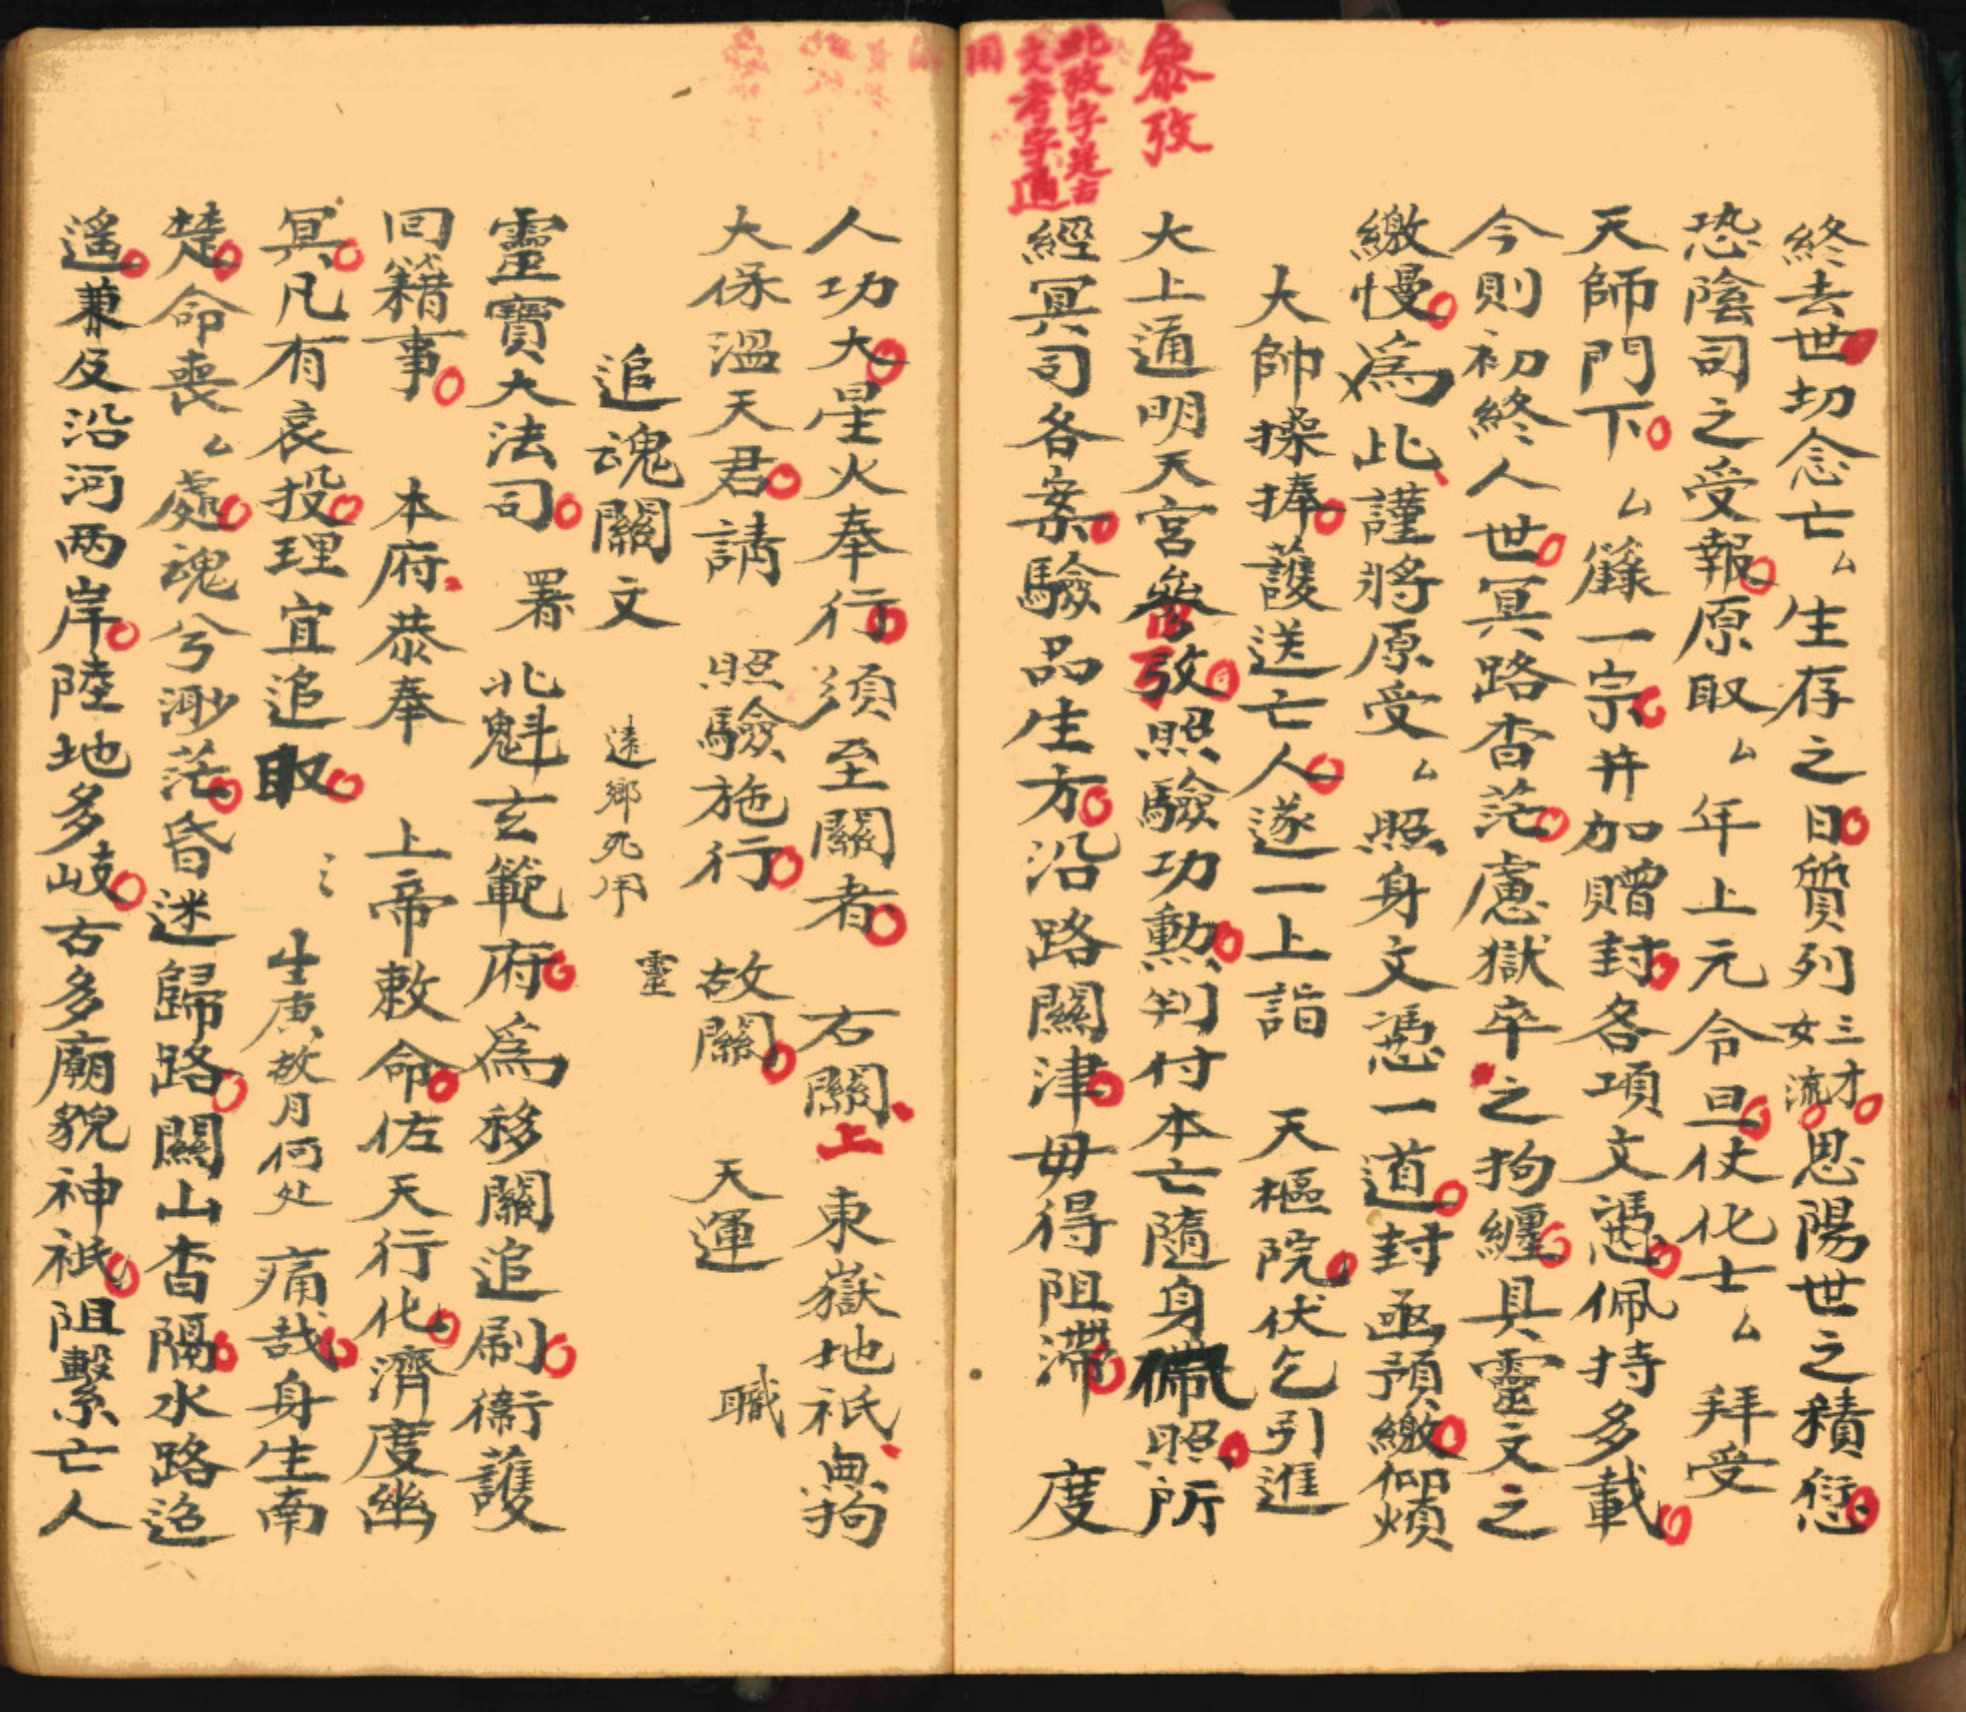 終去世切念亡厶生存之日質列三才女流思陽世之積愆
恐陰司之受報原取厶年上元令旦仗化士厶拜受
天師門下厶籙一宗并加贈封各項文憑佩持多載
今則初終人世冥路杳茫慮獄卒之拘纏具靈文之
繳慢爲此謹將原受厶照身文憑一道封函預繳仰煩
大帥操捧護送亡人遂一上詣 天樞院伏乞引進
大上通明天宮參攷照驗功勲判付本亡隨身佩照所
經冥司各案驗品生方沿路關津毋得阻滯 度
叅攷
此攷字是古
文考字通
用
人功大星火奉行須至關者 右關上東嶽地祇無拘
大保溫天君請 照驗施行 故關 天運 職
追魂關文 遠鄉死用 靈
靈寶大法司 署 北魁玄範府爲移關追刷衞護
回籍事 本府恭奉 上帝敕命佐天行化濟度幽
冥凡有哀投理宜追取 生庚故月何处 痛哉身生南
楚命喪厶處魂兮渺茫昏迷歸路關山杳隔水路迢
遙兼及沿河两岸陸地多岐古多廟貌神祇阻繫亡人